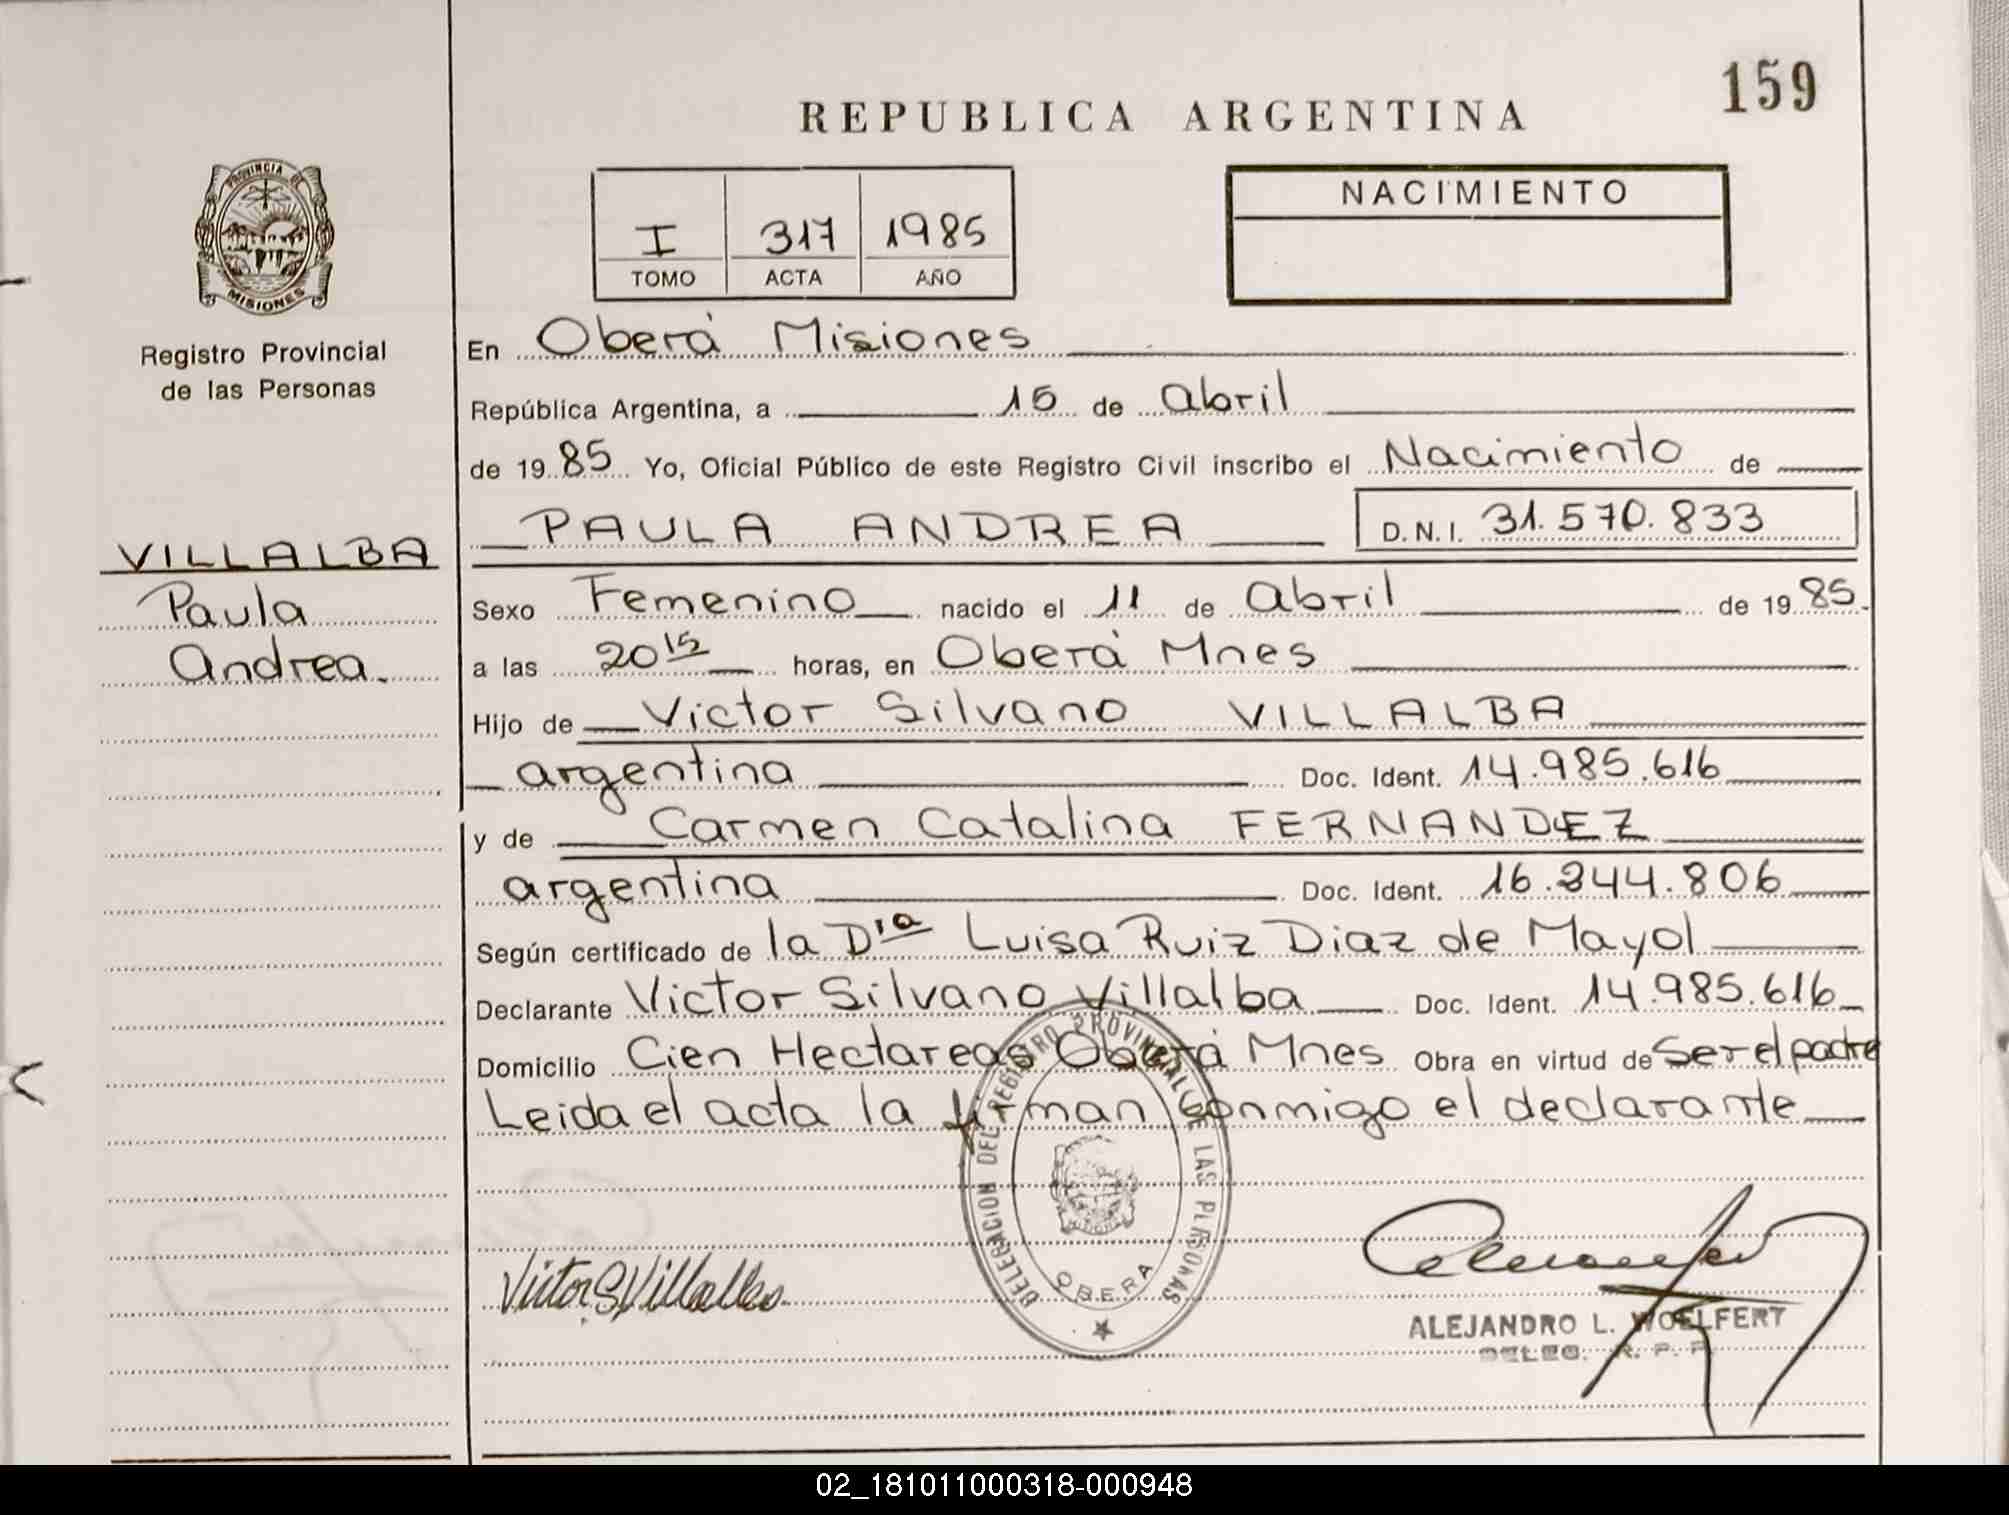 159
REPUBLICA ARGENTINA
PROVINCIA DE
MISIONES
Registro Provincial
de las Personas
I 317 1985
TOMO ACTA AÑO
NACIMIENTO
En Oberá Misiones
República Argentina, a 15 de abril
de 1985 Yo, Oficial Público de este Registro Civil inscribo el Nacimiento de
PAULA ANDREA D.N.I. 31.570.833
VILLALBA
Paula
Andrea.
Sexo Femenino nacido el 11 de abril de 1985
a las 20 15 horas, en Oberá Mnes
Hijo de Victor Silvano VILLALBA
argentina Doc. Ident. 14.985.616
y de Carmen Catalina FERNANDEZ
argentina Doc. Ident. 16.344.806
Según certificado de la Dra Luisa Ruiz Diaz de Mayol
Declarante Victor Silvano Villalba Doc. Ident. 14.985.616
Domicilio Cien Hectareas Oberá Mnes Obra en virtud de Ser el padre
Leida el acta la firman conmigo el declarante
DELEGACION DEL REGISTRO PROVINCIAL DE LAS PERSONAS
OBERA
Victor S Villalba
ALEJANDRO L. WOELFERT
DELEG. R. P. P.
02_181011000318-000948